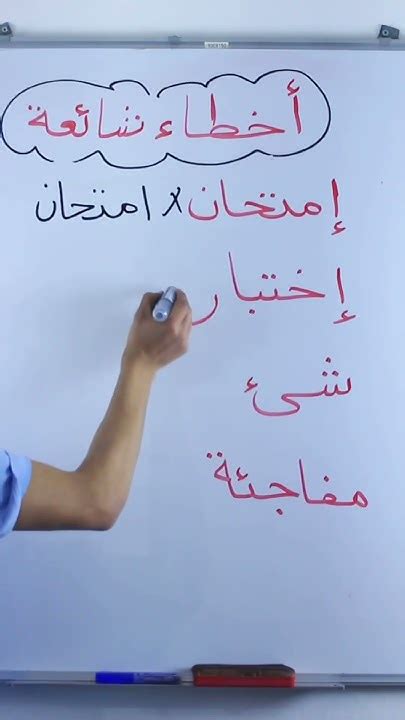 أخطاء شائعة
إمتحان x امتحان
إختبار
شئ
مفاجئة